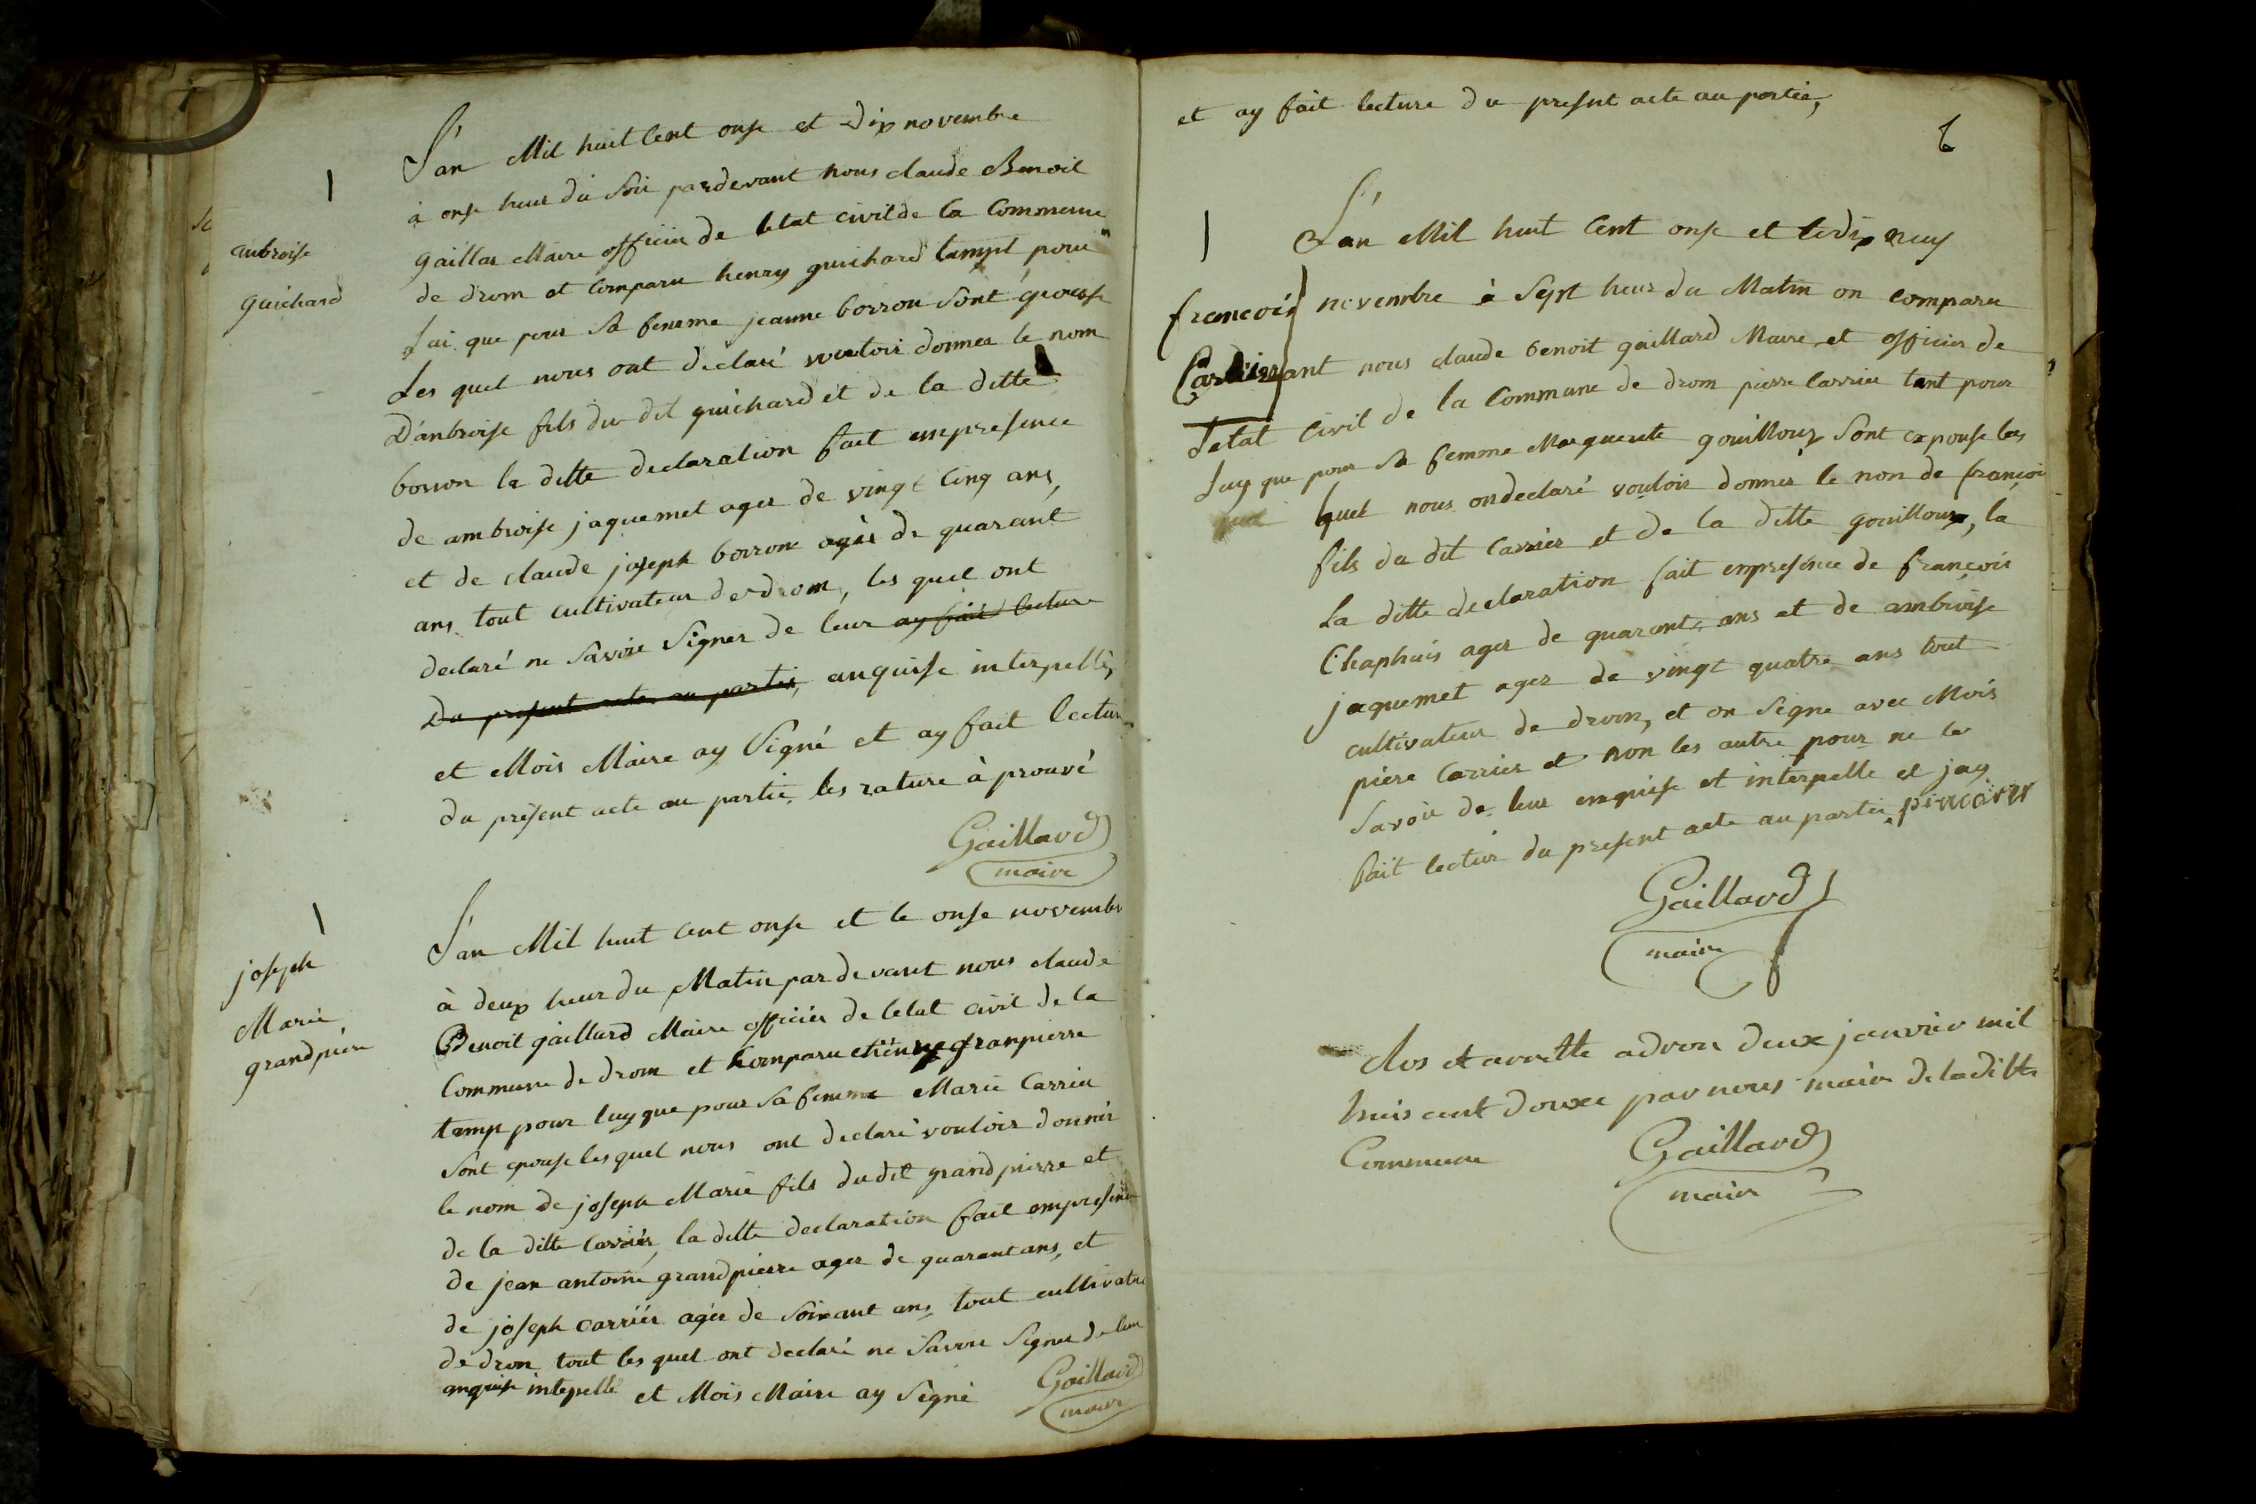 1
ambroise
guichard
L'an Mil huit Cent onse et dix novembre
à onse heur du Soir pardevant nous claude Benoit
gaillar Maire officier de letat civil de la Commune
de drom et Comparu henry guichard tampt pour
Lui que pour Sa femme jeanne borron Sont épouse
Les quel nous ont declaré vouloir donner le nom
D'ambroise fils du dit guichard et de la ditte
borron la ditte declaration fait empresence
de ambroise jaquemet ager de vingt Cinq ans,
et de claude joseph borron agér de quarant
ans tout cultivateur de drom, les quel ont
declaré ne Savoir Signer de leur ay fait lecture
Du present acte au partie, anquise interpellé,
et Mois Maire ay Signé et ay fait lectur
du présent acte au partie, les rature à prouvé
Gaillard
maire
1
joseph
Marie
grandpiere
L'an Mil huit Cent onse et le onse novembr
à deux heur du Matin pardevant nous claude
Benoit gaillard Maire officiér de letat Civil de la
Commune de drom et Comparu etienne granpierre
tamp pour luy que pour Sa femme Marie Carrier
Sont epouse les quel nous ont declaré vouloir donnér
le nom de joseph Marie fils du dit grandpierre et
de la ditte Carriér, la ditte declaration fait empresence
de jean antoine grandpierre ager de quarant ans, et
de joseph Carriér agér de Soixant ans, tout cultivateu
de drom tout les quel ont declaré ne Savoir Signer de leur
anquise intepellé et Mois Maire ay Signé
Gaillard
maire
et ay fait lecture du present acte au partie,
6
1
francois
Carrier
L'an Mil huit Cent onse et le dix neuf
novembre à Sept heur du Matin on comparu
devant nous claude benoit gaillard Maire et officier de
Letat Civil de la Commune de drom pierre Carrier tant pour
Luy que pour Sa femme Marguerite gouilloux Sont epouse les
quel nous on declaré vouloir donner le nom de françoi
fils du dit Carrier et de la ditte gouilloux, la
La ditte declaration fait empresence de françois
Chaphuis ager de quarante ans et de ambroise
jaquemet ager de vingt quatre ans tout
cultivateur de drom, et on Signe avec Mois
piere Carrier et non les autre pour ne le
Savoir de leur enquise et interpelle et jay
fait lectur du present acte au partie
Gaillard
maire
Clos et arrette a drom deux janvier mil
huis cent douxe par nous maire de la ditte
Commune
Gaillard
maire